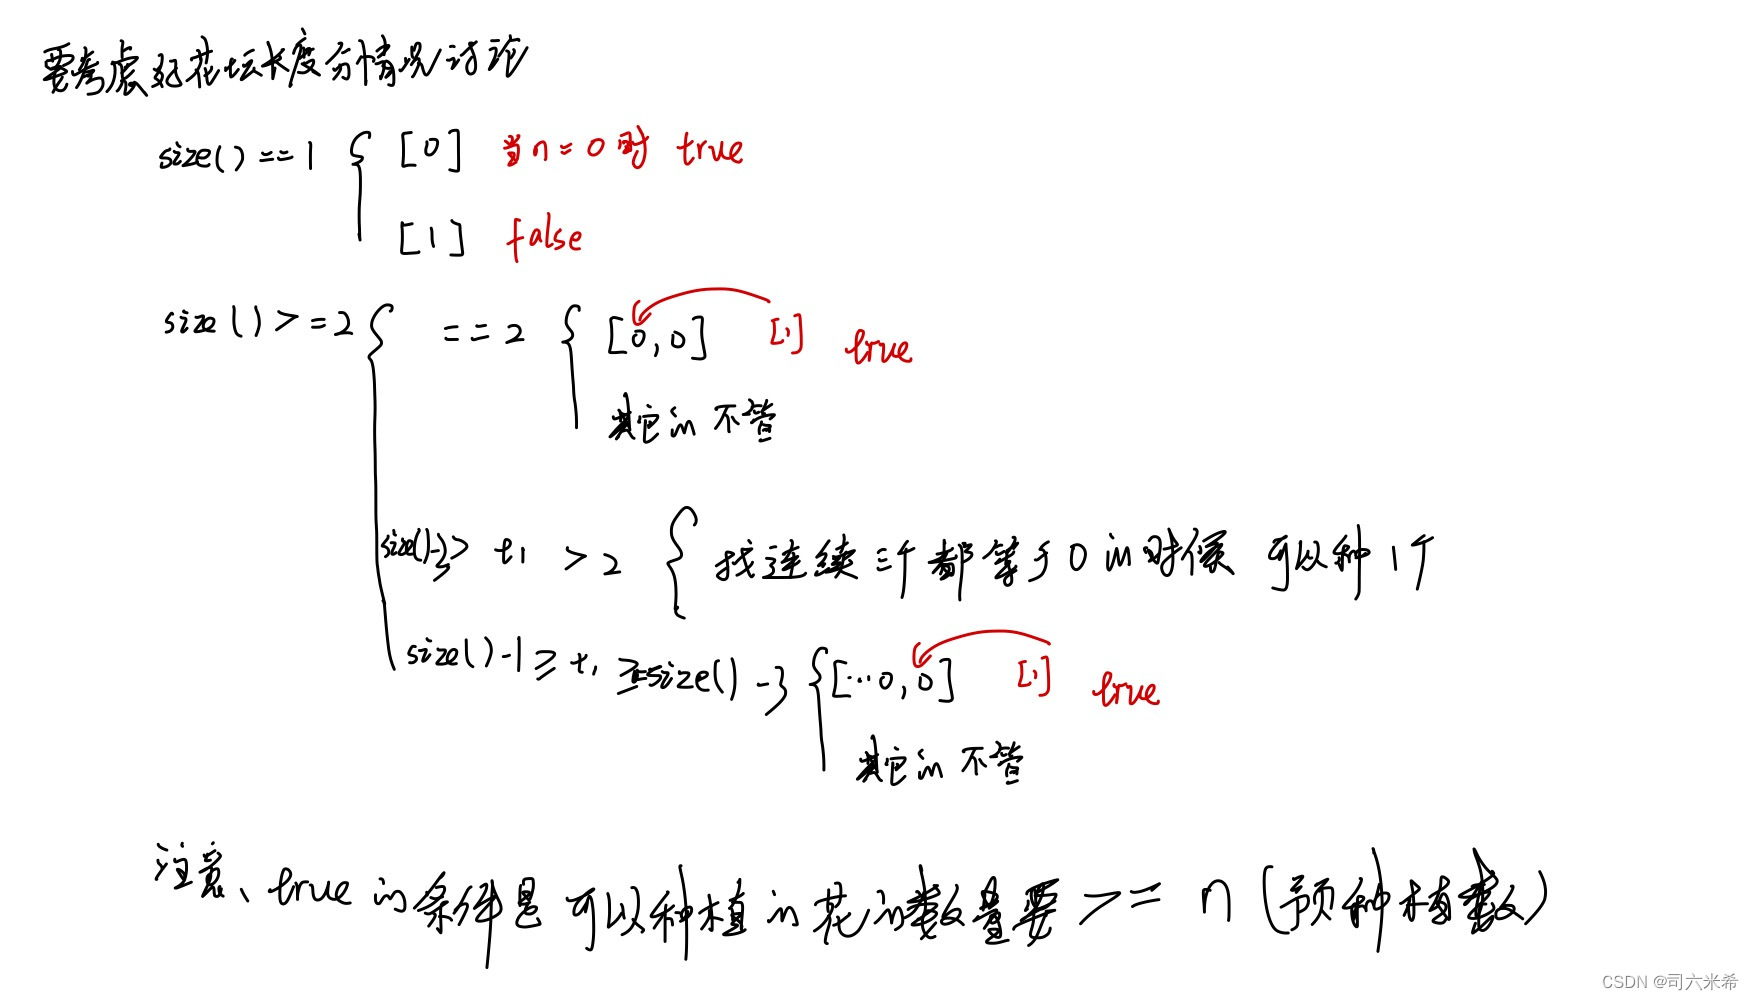 要考虑到花坛长度分情况讨论
size()==1 { [0] 当n=0时 true
[1] false
size()>=2 { ==2 { [0,0] [1] true
其它的 不管
size()-3> t1 >2 { 找连续三个都等于0的时候 可以种1个
size()-1≥ t1 ≥=size()-3 { [...0,0] [1] true
其它的 不管
注意、true的条件是 可以种植的花的数量要>= n (预种植数)
CSDN @司六米希